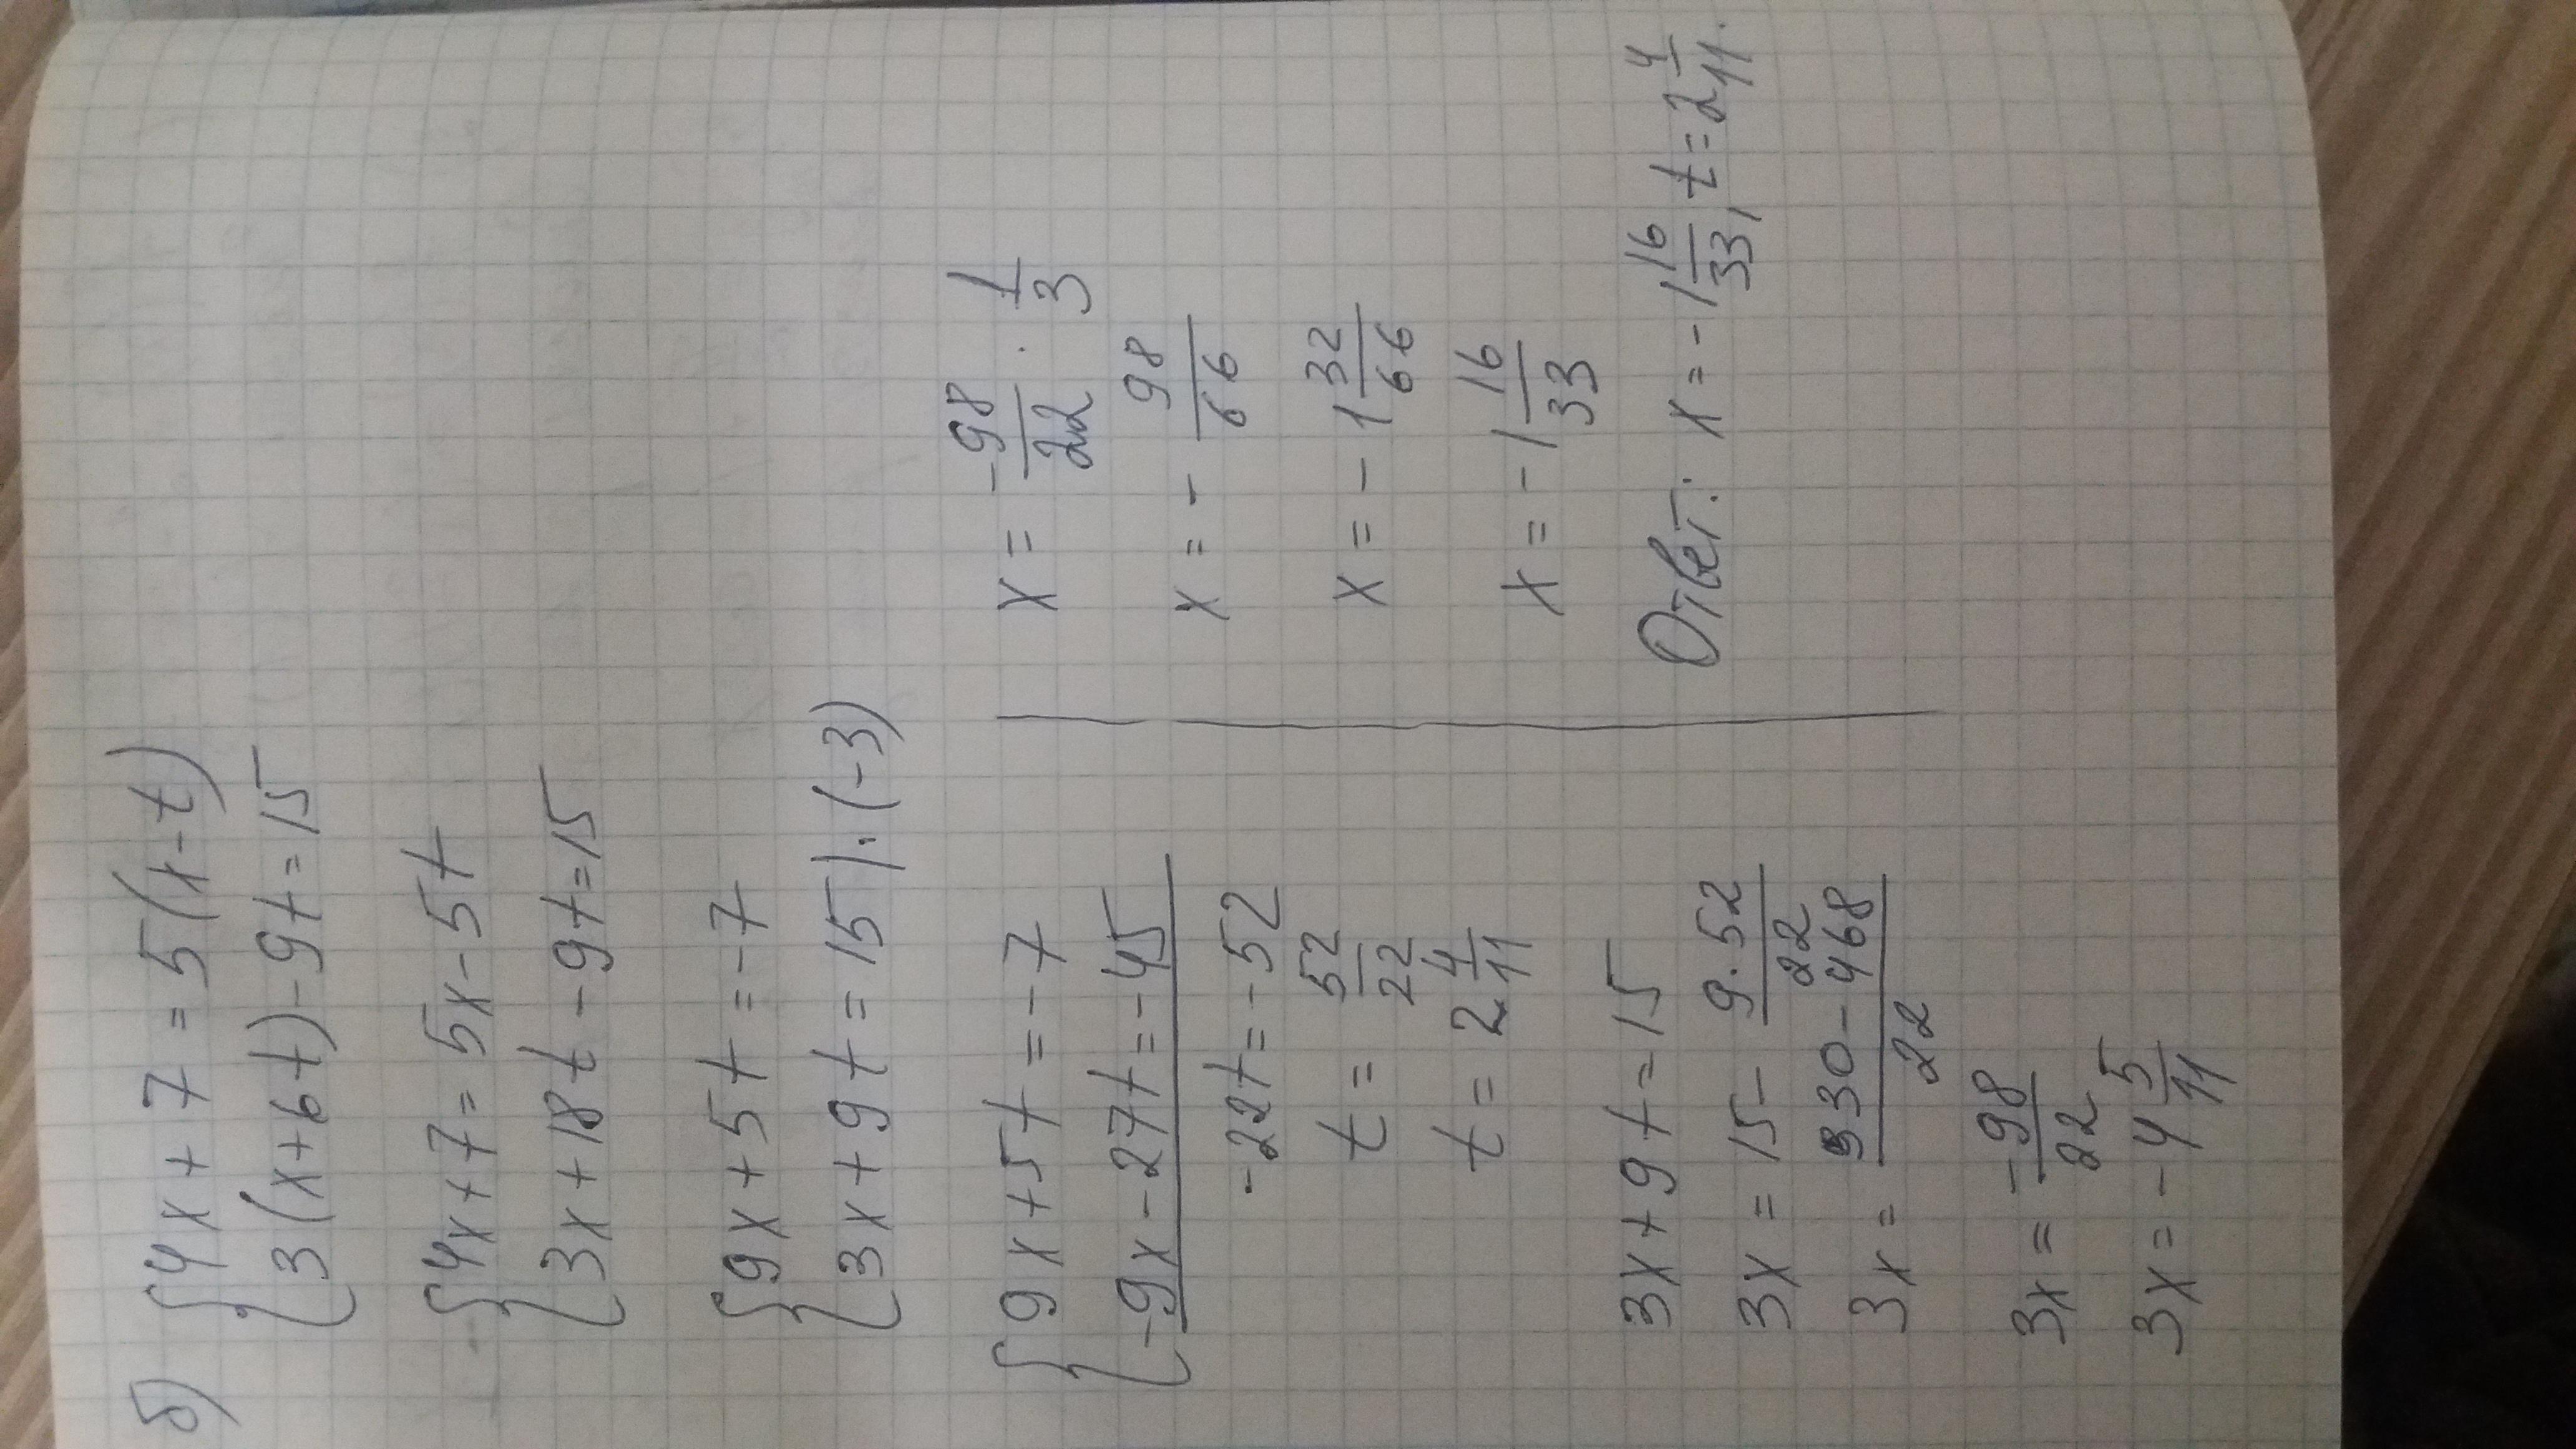 б) {4x + 7 = 5(x-t)
{3(x+6t)-9t=15
{4x+7=5x-5t
{3x+18t-9t=15
{9x+5t=-7
{3x+9t=15 |·(-3)
{9x+5t=-7
{-9x-27t=-45
-22t=-52
t = 52/22
t = 2 4/11
3x+9t=15
3x = 15 - 9·52/22
3x = 330-468/22
3x = -98/22
3x = -4 5/11
x = -98/22 · 1/3
x = - 98/66
x = -1 32/66
x = -1 16/33
Ответ: x = -1 16/33, t = 2 4/11.